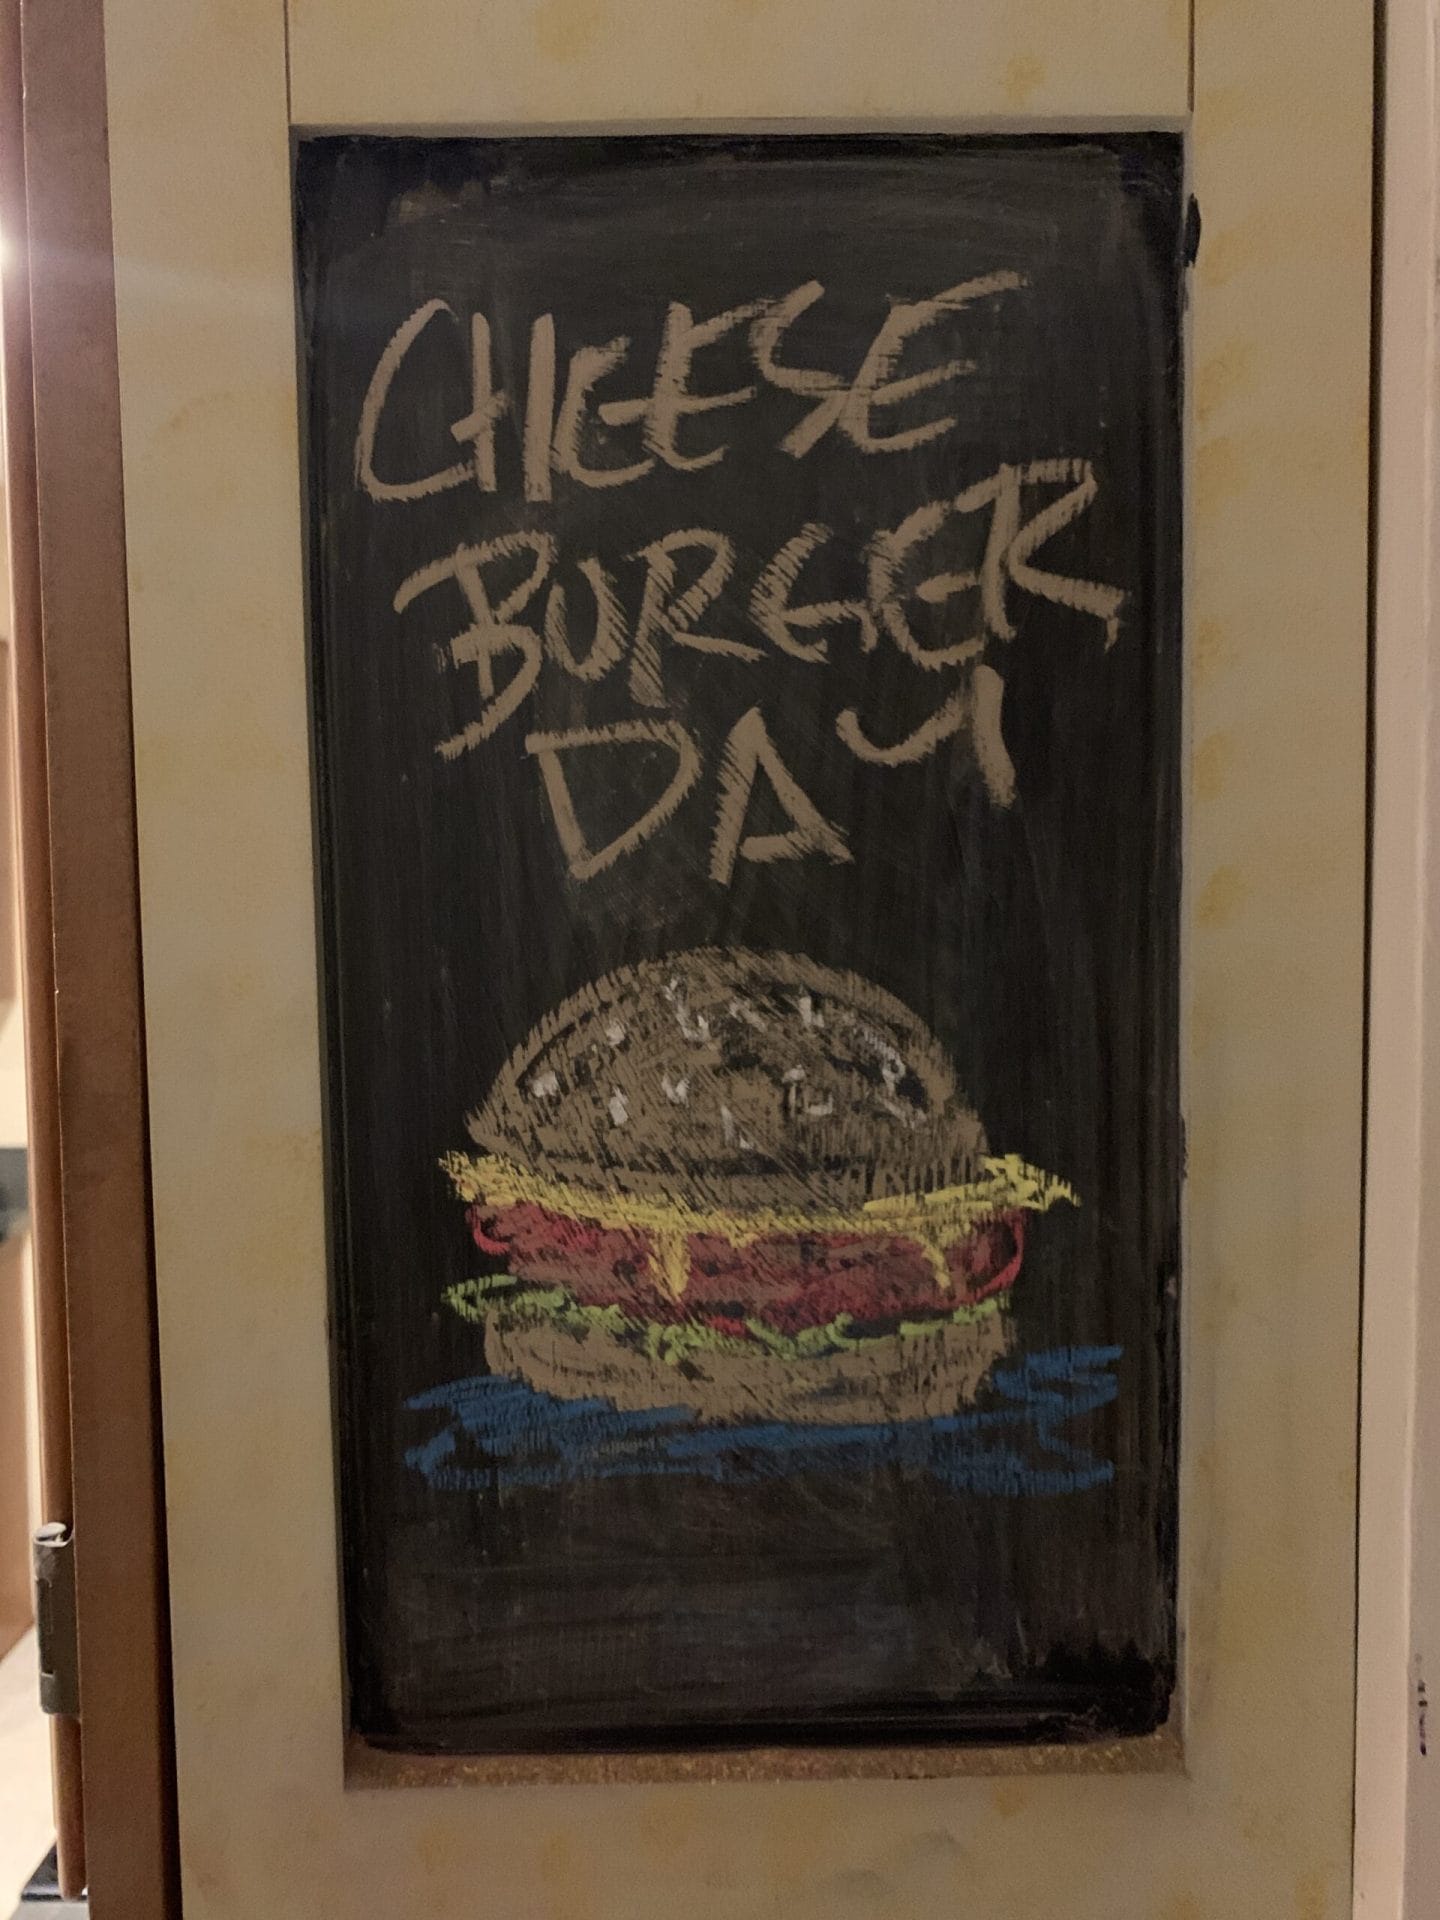 CHEESE
BURGER
DAY